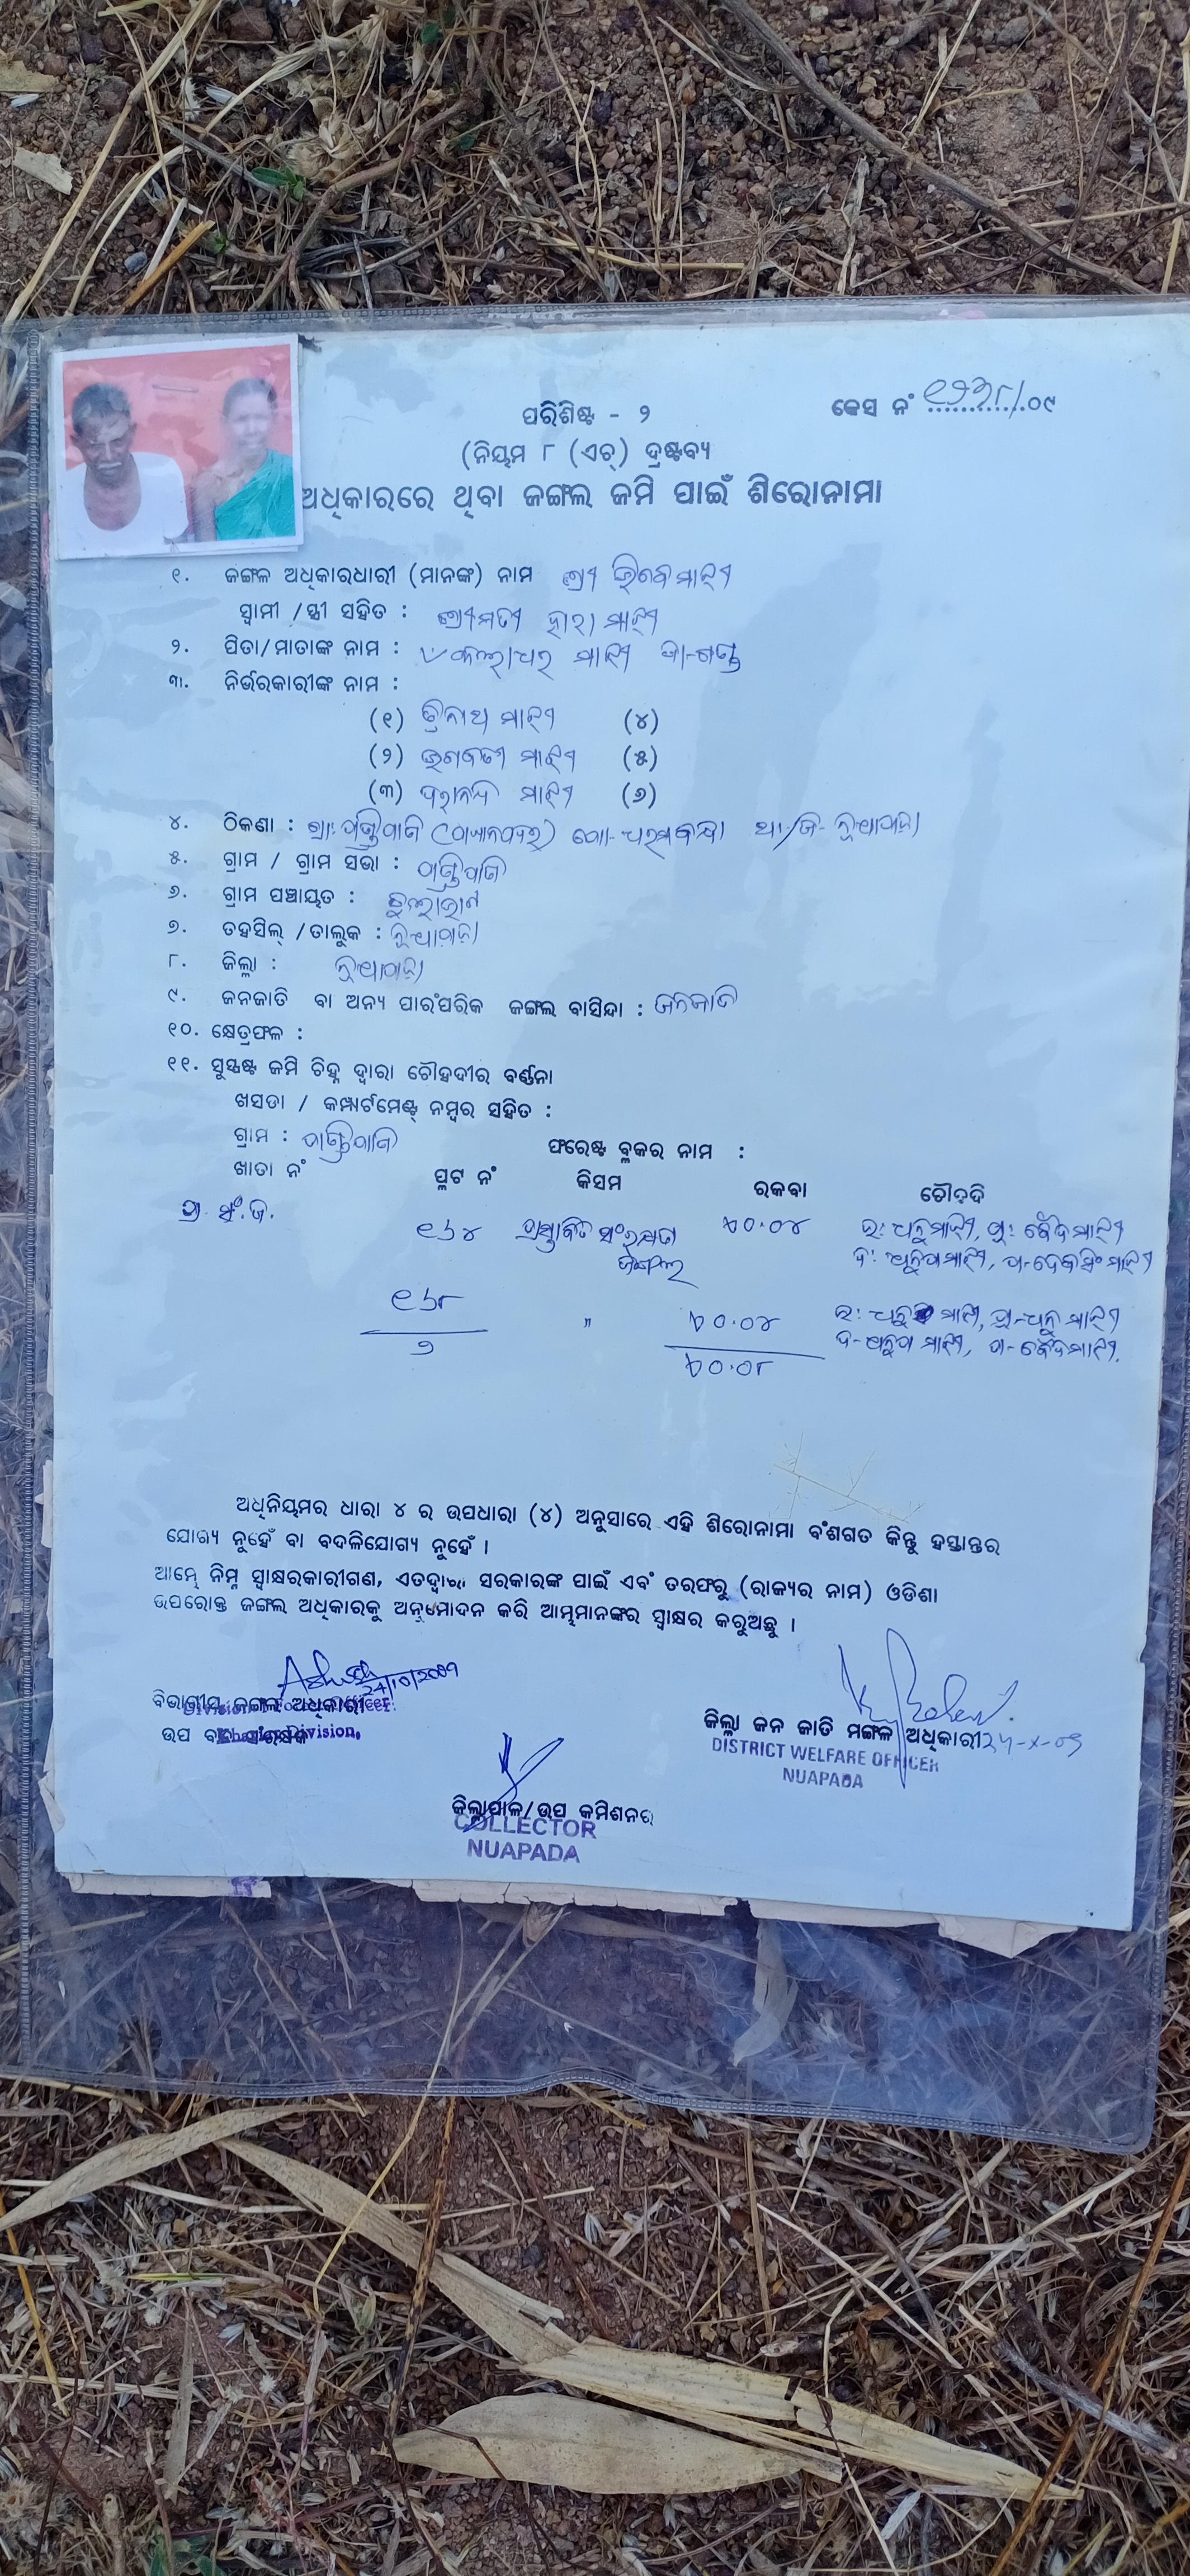 କେସ ନଂ ୧୨୩୮/୦୯
ପରିଶିଷ୍ଟ - ୨
(ନିୟମ ୮ (ଏଚ୍) ଦ୍ରଷ୍ଟବ୍ୟ
ଅଧିକାରରେ ଥିବା ଜଙ୍ଗଲ ଜମି ପାଇଁ ଶିରୋନାମା
୧. ଜଙ୍ଗଲ ଅଧିକାରଧାରୀ (ମାନଙ୍କ) ନାମ ଶ୍ରୀ ମାଝୀ
ସ୍ୱାମୀ /ସ୍ତ୍ରୀ ସହିତ : ଶ୍ରୀମତୀ ହାରା ମାଝୀ
୨. ପିତା/ମାତାଙ୍କ ନାମ : ମାଝୀ ଜା-ଗଣ୍ଡ
୩. ନିର୍ଭରକାରୀଙ୍କ ନାମ :
(୧) ତ୍ରିନାଥ ମାଝୀ (୪)
(୨) ଭଗବତୀ ମାଝୀ (୫)
(୩) ମାଝୀ (୬)
୪. ଠିକଣା : ଗ୍ରା: ପୋ- ଧରମବନ୍ଧା ଥା/ଜି- ନୂଆପଡ଼ା
୫. ଗ୍ରାମ / ଗ୍ରାମ ସଭା :
୬. ଗ୍ରାମ ପଞ୍ଚାୟତ :
୭. ତହସିଲ୍ /ତାଲୁକ : ନୂଆପଡ଼ା
୮. ଜିଲ୍ଲା : ନୂଆପଡ଼ା
୯. ଜନଜାତି ବା ଅନ୍ୟ ପାରଂପରିକ ଜଙ୍ଗଲ ବାସିନ୍ଦା : ଜନଜାତି
୧୦. କ୍ଷେତ୍ରଫଳ :
୧୧. ସୁସ୍ପଷ୍ଟ ଜମି ଚିହ୍ନ ଦ୍ୱାରା ଚୌହଦୀର ବର୍ଣ୍ଣନା
ଖସଡା / କମ୍ପାର୍ଟମେଣ୍ଟ୍ ନମ୍ବର ସହିତ :
ଗ୍ରାମ : ଫରେଷ୍ଟ ବ୍ଳକର ନାମ :
ଖାତା ନଂ ପ୍ଳଟ ନଂ କିସମ ରକବା ଚୌହଦି
ପ୍ର.ସଂ.ଜ. ୧୬୪ ପ୍ରସ୍ତାବିତ ସଂରକ୍ଷିତ ୦.୦୪ ଉ: ଧନୁମାଝୀ, ପୂ: ମାଝୀ
ଜଙ୍ଗଲ ଦ: ମାଝୀ, ପ-ଦେବସିଂ ମାଝୀ
୧୬୮ " ୦.୦୪ ଉ: ମାଝୀ, ପୂ-ଧନୁ ମାଝୀ
୨ ୦.୦୮ ଦ- ମାଝୀ, ପ- ମାଝୀ.
ଅଧିନିୟମର ଧାରା ୪ ର ଉପଧାରା (୪) ଅନୁସାରେ ଏହି ଶିରୋନାମା ବଂଶଗତ କିନ୍ତୁ ହସ୍ତାନ୍ତର
ଯୋଗ୍ୟ ନୁହେଁ ବା ବଦଳିଯୋଗ୍ୟ ନୁହେଁ ।
ଆମ୍ଭେ ନିମ୍ନ ସ୍ୱାକ୍ଷରକାରୀଗଣ, ଏତଦ୍ୱାରା ସରକାରଙ୍କ ପାଇଁ ଏବଂ ତରଫରୁ (ରାଜ୍ୟର ନାମ) ଓଡିଶା
ଉପରୋକ୍ତ ଜଙ୍ଗଲ ଅଧିକାରକୁ ଅନୁମୋଦନ କରି ଆମ୍ଭମାନଙ୍କର ସ୍ୱାକ୍ଷର କରୁଅଛୁ ।
24/10/2009
ବିଭାଗୀୟ ଜଙ୍ଗଲ ଅଧିକାରୀ
Divisional Forest Officer
ଉପ ବନ ସଂରକ୍ଷକ
Division.
ଜିଲ୍ଲା ଜନ ଜାତି ମଙ୍ଗଳ ଅଧିକାରୀ 24-X-09
DISTRICT WELFARE OFFICER
NUAPADA
ଜିଲ୍ଲାପାଳ/ଉପ କମିଶନର
COLLECTOR
NUAPADA